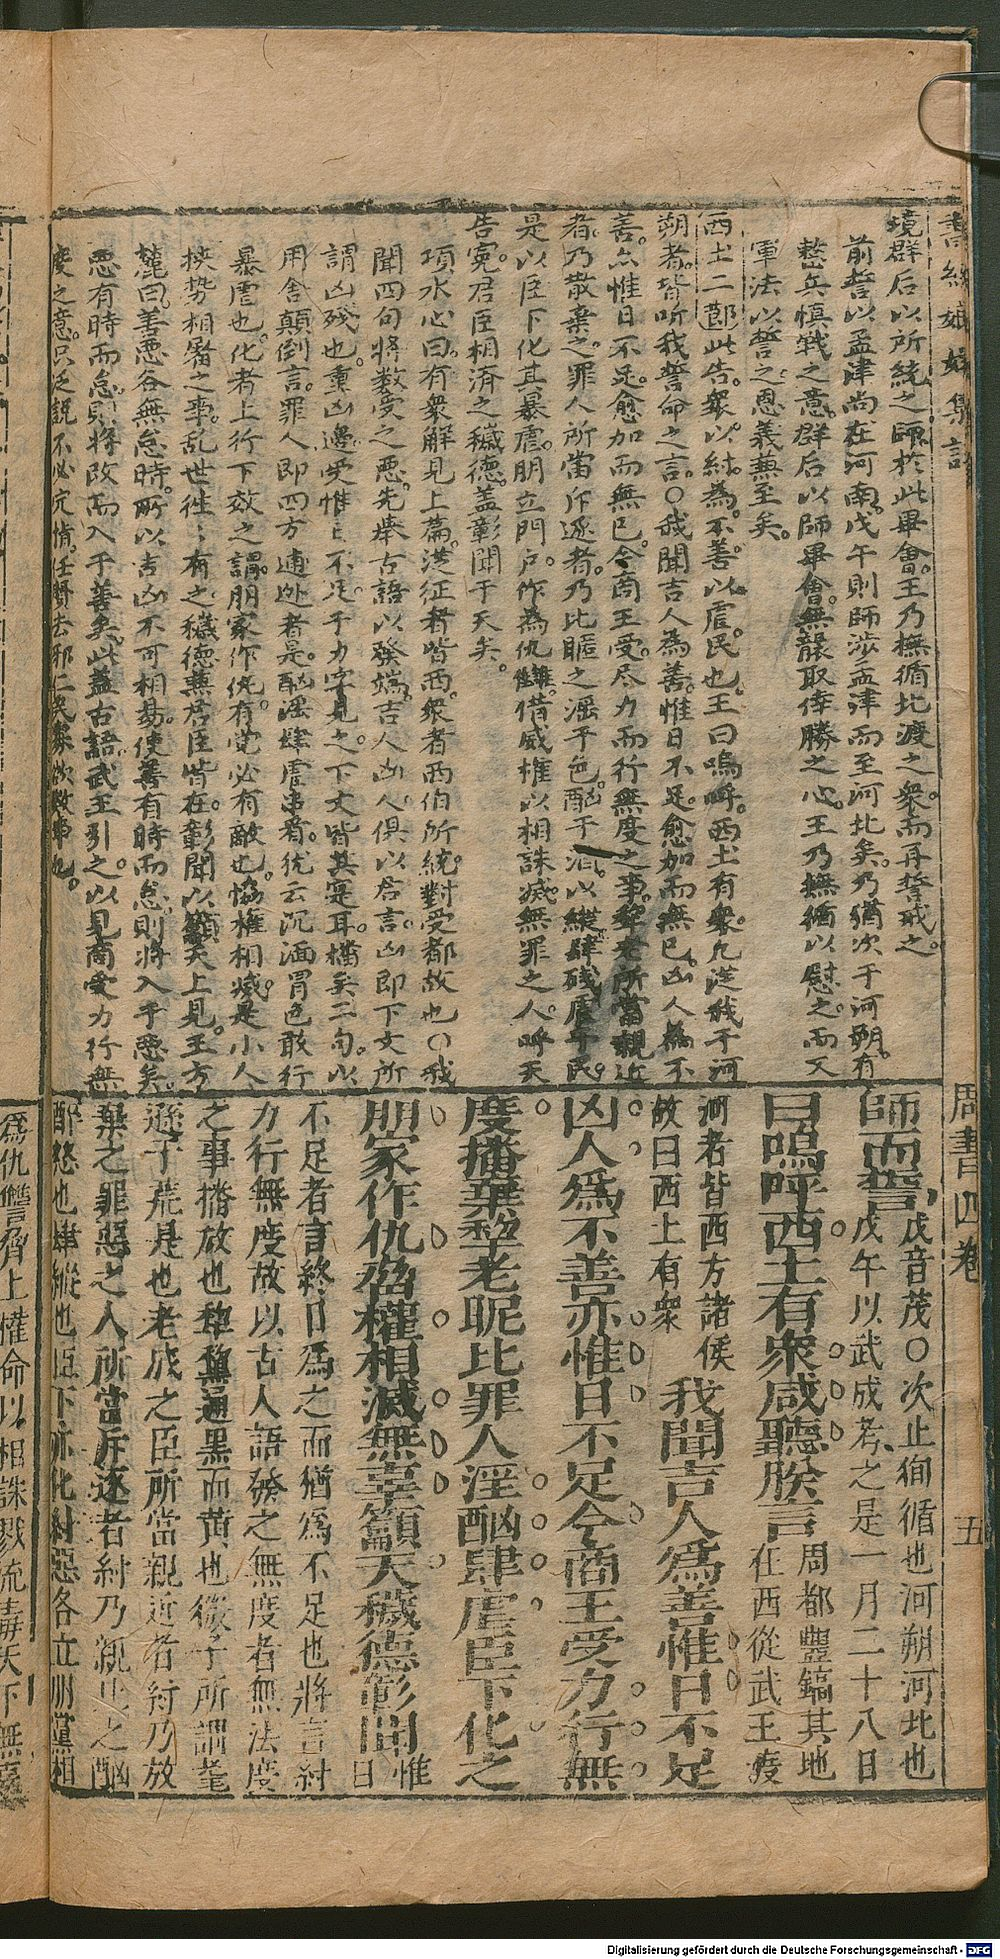 境群后以所統之師於此畢會王乃撫循北渡之衆而再誓戒之
前誓以孟津尚在河南戊午則師涉孟津而至河北矣乃猶次于河朔有
整兵慎戰之意群后以師畢會無襲取倖勝之心王乃撫循以慰之而又
軍法以誓之恩義兼至矣
西土二節此告衆以紂為不善以虐民也王曰嗚呼西土有衆凡從我于河
朔者皆听我誓命之言○我聞吉人為善惟日不足愈加而無已凶人為不
善亦惟日不足愈加而無已今商王受尽力而行無度之事犂老所當親近
者乃散棄之罪人所當斥逐者乃比暱之淫乎色酗于酒以縱肆殘虐乎民
是以臣下化其暴虐朋立門戶作為仇讎借威權以相誅滅無罪之人呼天
告冤君臣相濟之穢德盖彰聞于天矣
項水心曰有衆解見上篇從征者皆西衆者西伯所統對受都故也○我
聞四句將数受之惡先舉古語以發端吉人凶人俱以君言凶即下文所
謂凶殘也重凶邊受惟日不足于力字見之下文皆其寔耳播矣二句以
用舍顛倒言罪人即四方逋逃者是酗淫肆虐串看猶云沉湎冒色敢行
暴虐也化者上行下效之謂朋家作仇有党必有敵也恊權相滅是小人
挾势相磨之事乱世往往有之穢德兼君臣皆在彰聞以籲天上見王方
麓曰善惡各無怠時所以吉凶不可相易使善有時而怠則將入乎惡矣
惡有時而怠則將改而入乎善矣此盖古語武王引之以見商受力行無
度之意只泛説不必究情任賢去邪
周書四卷
五
師而誓戊音茂○次止徇循也河朔河北也
戊午以武成考之是一月二十八日
曰嗚呼西土有衆咸聽朕言周都豐鎬其地
在西從武王渡
河者皆西方諸侯
故曰西土有衆
我聞吉人爲善惟日不足
凶人爲不善亦惟日不足今商王受力行無
度播棄犂老昵比罪人淫酗肆虐臣下化之
朋家作仇脅權相滅無辜籲天穢德彰聞惟
日
不足者言終日爲之而猶爲不足也將言紂
力行無度故以古人語發之無度者無法度
之事播放也犂黧通黑而黄也微子所謂耄
遜于荒是也老成之臣所當親近者紂乃放
棄之罪惡之人所當斥逐者紂乃親比之酗
醉怒也肆縱也臣下亦化紂惡各立朋黨相
爲仇讐脅上權命以相誅戮流毒天下無辜
Digitalisierung gefördert durch die Deutsche Forschungsgemeinschaft - DFG